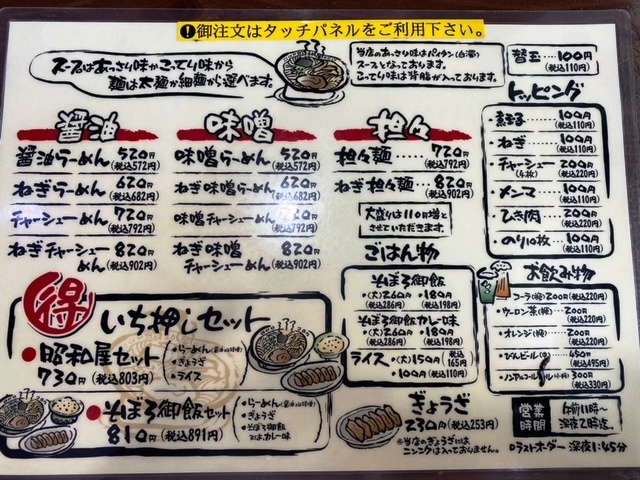 ❶御注文はタッチパネルをご利用下さい。
スープはあっさり味かこってり味から
麺は太麺か細麺から選べます。
当店のあっさり味はパイタン(白湯)
スープとなっております。
こってり味は背脂が入っております。
替玉…100円
(税込110円)
醤油
醤油らーめん 520円
(税込572円)
ねぎらーめん 620円
(税込682円)
チャーシューめん 720円
(税込792円)
ねぎチャーシュー
めん 820円
(税込902円)
味噌
味噌らーめん 520円
(税込572円)
ねぎ味噌らーめん 620円
(税込682円)
味噌チャーシューめん 720円
(税込792円)
ねぎ味噌
チャーシューめん 820円
(税込902円)
担々
担々麺……720円
(税込792円)
ねぎ担々麺…820円
(税込902円)
大盛りは110円増と
させていただきます。
トッピング
・煮玉子……100円
(税込110円)
・ねぎ……100円
(税込110円)
・チャーシュー…200円
(4枚)(税込220円)
・メンマ……100円
(税込110円)
・ひき肉……200円
(税込220円)
・のり10枚…100円
(税込110円)
ごはん物
そぼろ御飯
・(大)260円・180円
(税込286円)(税込198円)
そぼろ御飯カレー味
・(大)260円・180円
(税込286円)(税込198円)
ライス・(大)150円(税込165円)
・100円(税込110円)
お飲み物
・コーラ(瓶)200円(税込220円)
・ウーロン茶(瓶)…200円
(税込220円)
・オレンジ(瓶)…200円
(税込220円)
・ビンビール(中)…450円
(税込495円)
・ノンアルコールビール(小瓶)300円
(税込330円)
得
いち押しセット
●昭和屋セット
730円(税込803円)
・らーめん(醤油or味噌)
・ぎょうざ
・ライス
●そぼろ御飯セット
810円(税込891円)
・らーめん(醤油or味噌)
・ぎょうざ
・そぼろ御飯
又は、カレー味
ぎょうざ
230円(税込253円)
※当店のぎょうざには
ニンニクは入っておりません。
営業時間
午前11時〜
深夜2時迄
ラストオーダー 深夜1:45分